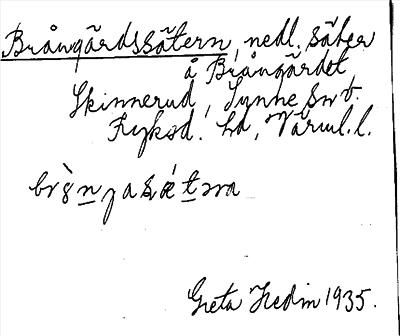 Brångårdssätern, nedl. säter
å Brångårdet,
Skinnerud, Sunne sn o.
Fryksd. hd, Värml. l.
Greta Hedin 1935.